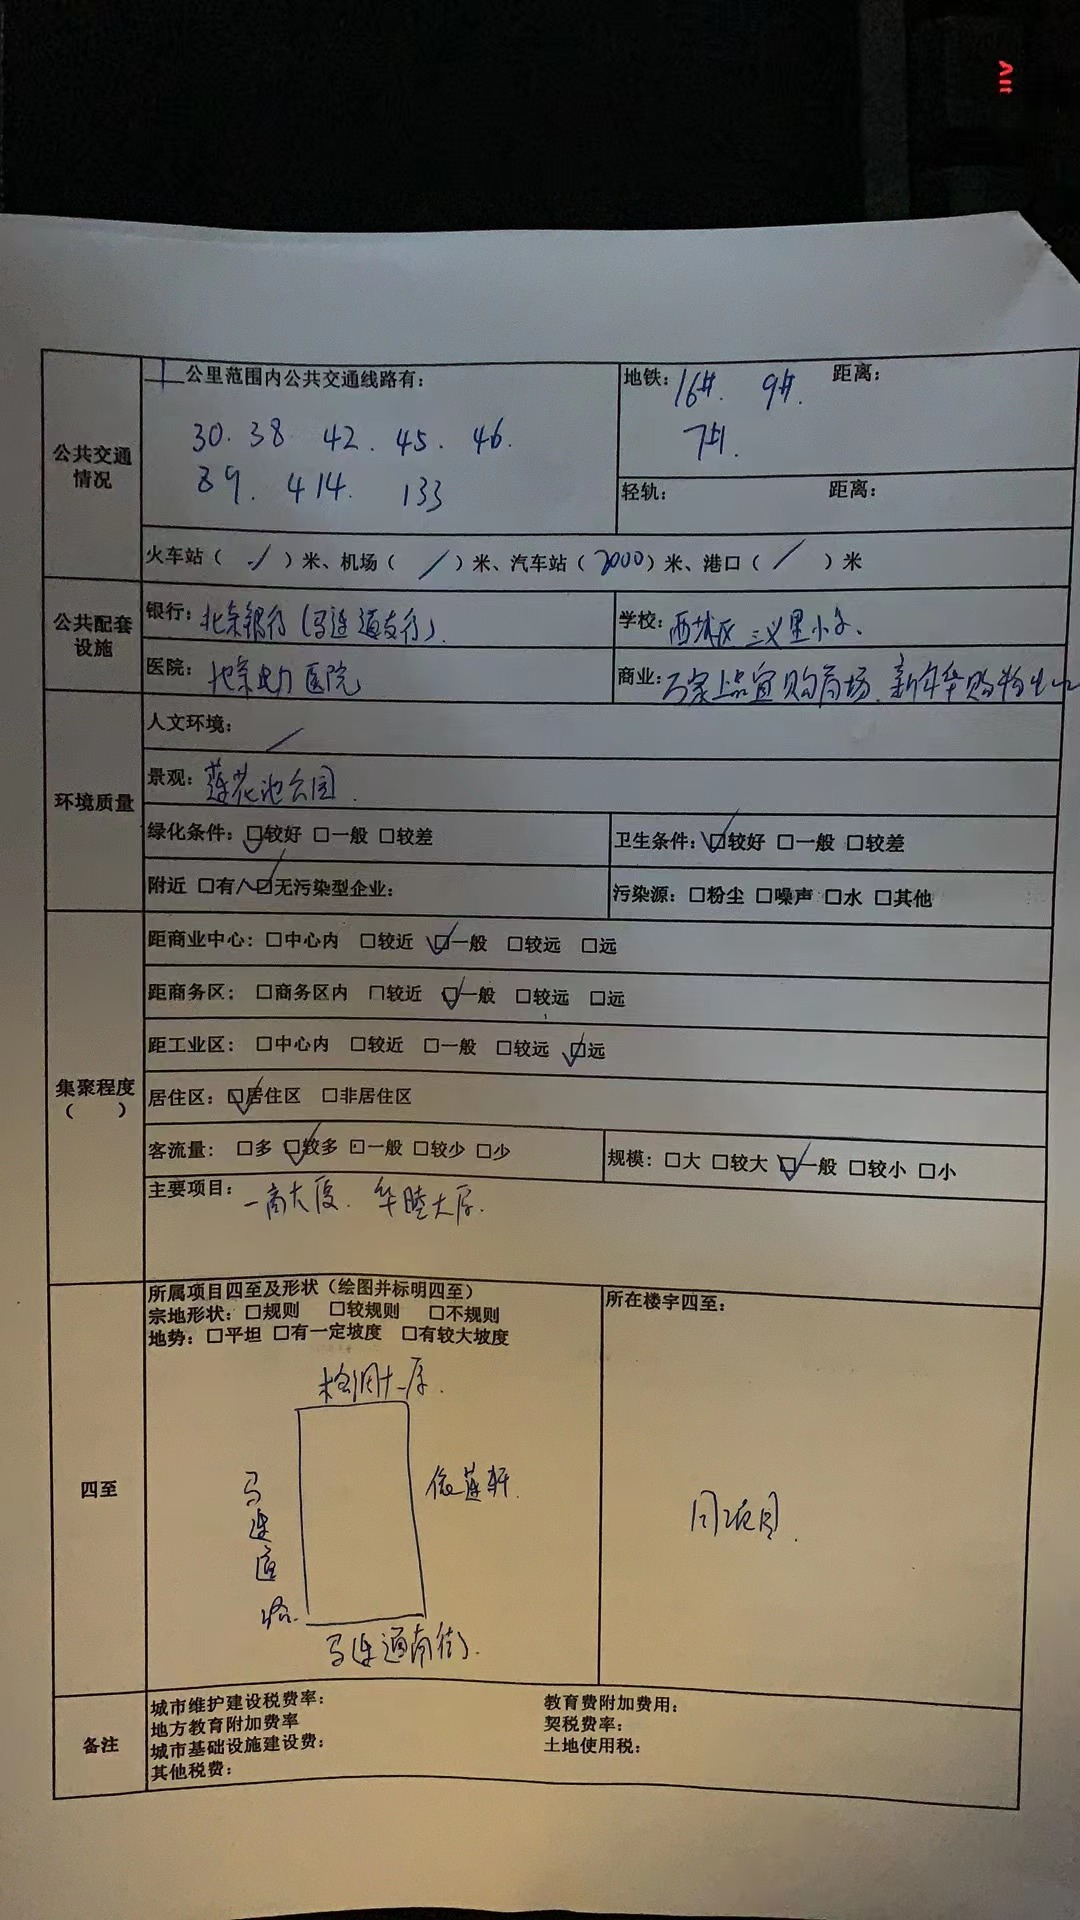 All
1 公里范围内公共交通线路有：
30. 38 42. 45. 46.
89. 414. 133
地铁： 16#. 9#. 距离：
7#.
轻轨： 距离：
公共交通
情况
火车站（ / ）米、机场（ / ）米、汽车站（2000）米、港口（ / ）米
公共配套
设施
银行：北京银行(马连道支行).
学校：西城区三义里小学、
医院：北京电力医院
商业：万家上品宜购商场、新年华购物中心
环境质量
人文环境： /
景观：莲花池公园.
绿化条件：☑较好 □一般 □较差
卫生条件：☑较好 □一般 □较差
附近 □有/☑无污染型企业：
污染源：□粉尘 □噪声 □水 □其他
集聚程度
（ ）
距商业中心：□中心内 □较近 ☑一般 □较远 □远
距商务区：□商务区内 □较近 ☑一般 □较远 □远
距工业区：□中心内 □较近 □一般 □较远 ☑远
居住区：☑居住区 □非居住区
客流量：□多 ☑较多 □一般 □较少 □少
规模：□大 □较大 ☑一般 □较小 □小
主要项目：一商大厦. 华睦大厦.
四至
所属项目四至及形状（绘图并标明四至）
宗地形状：□规则 □较规则 □不规则
地势：□平坦 □有一定坡度 □有较大坡度
所在楼宇四至：
依莲轩.
马连道路.
马连道南街.
同项目.
备注
城市维护建设税费率：
地方教育附加费率
城市基础设施建设费：
其他税费：
教育费附加费用：
契税费率：
土地使用税：